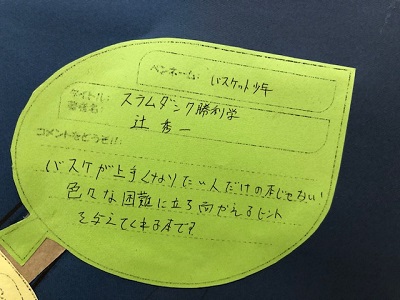 ペンネーム: バスケット少年
タイトル: スラムダンク勝利学
著者名 辻 秀一
コメントをどうぞ!!:
バスケが上手くなりたい人だけの本じゃない!
色々な困難に立ち向かえるヒント
を与えてくれる本です